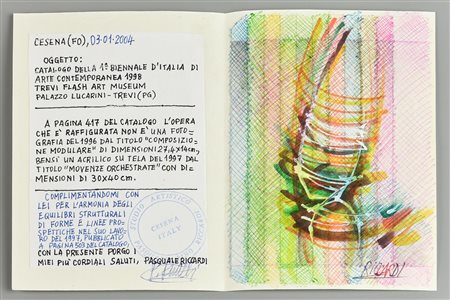 CESENA (FO), 03-01-2004
OGGETTO:
CATALOGO DELLA 1ª BIENNALE D'ITALIA DI
ARTE CONTEMPORANEA 1998
TREVI FLASH ART MUSEUM
PALAZZO LUCARINI - TREVI (PG)
A PAGINA 417 DEL CATALOGO L'OPERA
CHE È RAFFIGURATA NON È UNA FOTO=
GRAFIA DEL 1996 DAL TITOLO "COMPOSIZIO=
NE MODULARE" DI DIMENSIONI 27,4×14 cm,
BENSÌ UN ACRILICO SU TELA DEL 1997 DAL
TITOLO "MOVENZE ORCHESTRATE" CON DI=
MENSIONI DI 30×40 cm.
COMPLIMENTANDOMI CON
LEI PER L'ARMONIA DEGLI
EQUILIBRI STRUTTURALI
DI FORME E LINEE PRO=
SPETTICHE NEL SUO LAVO=
RO DEL 1997, PUBBLICATO
A PAGINA 503 DEL CATALOGO,
CON LA PRESENTE PORGO I
MIEI PIÙ CORDIALI SALUTI, PASQUALE RICCARDI
STUDIO ARTISTICO
CESENA
ITALY
RICCARDI